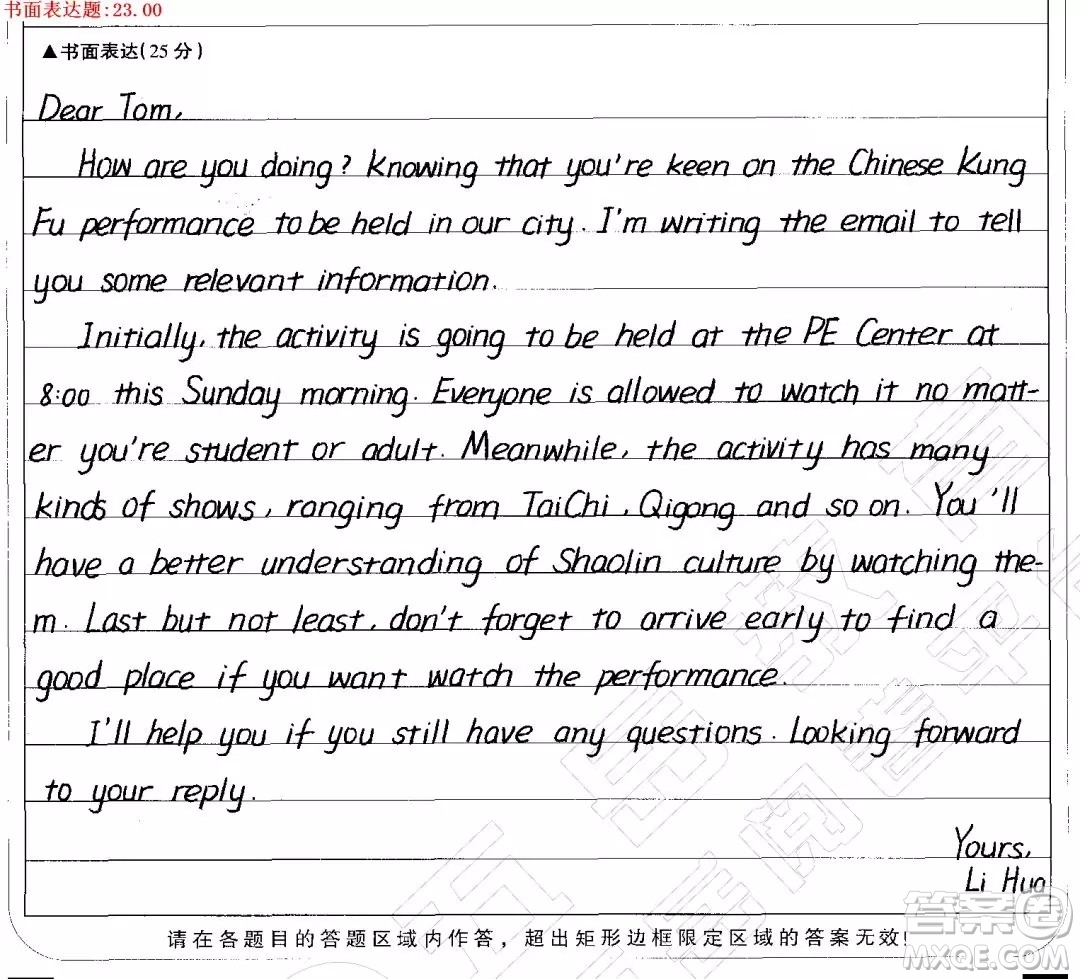 书面表达题:23.00
▲书面表达(25分)
Dear Tom,
How are you doing? Knowing that you're keen on the Chinese Kung
Fu performance to be held in our city. I'm writing the email to tell
you some relevant information.
Initially, the activity is going to be held at the PE Center at
8:00 this Sunday morning. Everyone is allowed to watch it no matt-
er you're student or adult. Meanwhile, the activity has many
kinds of shows, ranging from TaiChi, Qigong and so on. You'll
have a better understanding of Shaolin culture by watching the-
m. Last but not least, don't forget to arrive early to find a
good place if you want watch the performance.
I'll help you if you still have any questions. Looking forward
to your reply.
Yours,
Li Hua
请在各题目的答题区域内作答，超出矩形边框限定区域的答案无效!
答案圈
MXQE.COM